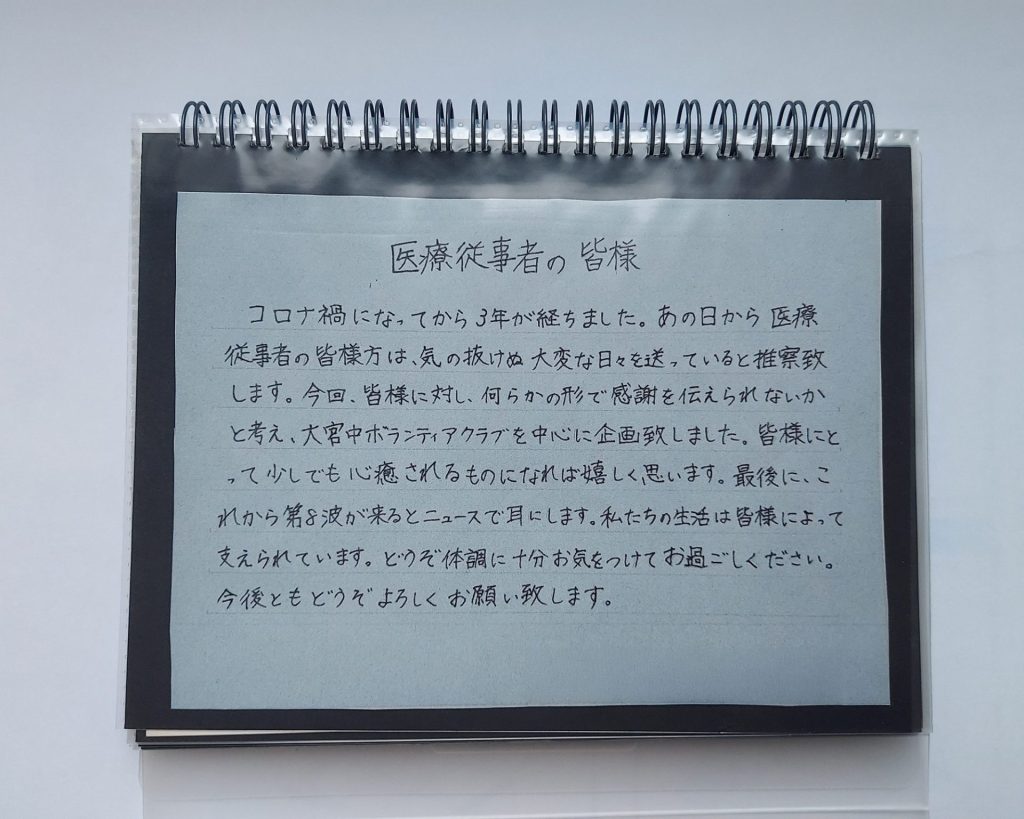 医療従事者の皆様
コロナ禍になってから3年が経ちました。あの日から医療
従事者の皆様方は、気の抜けぬ大変な日々を送っていると推察致
します。今回、皆様に対し、何らかの形で感謝を伝えられないか
と考え、大宮中ボランティアクラブを中心に企画致しました。皆様にと
って少しでも心癒されるものになれば嬉しく思います。最後に、こ
れから第8波が来るとニュースで耳にします。私たちの生活は皆様によって
支えられています。どうぞ体調に十分お気をつけてお過ごしください。
今後ともどうぞよろしくお願い致します。